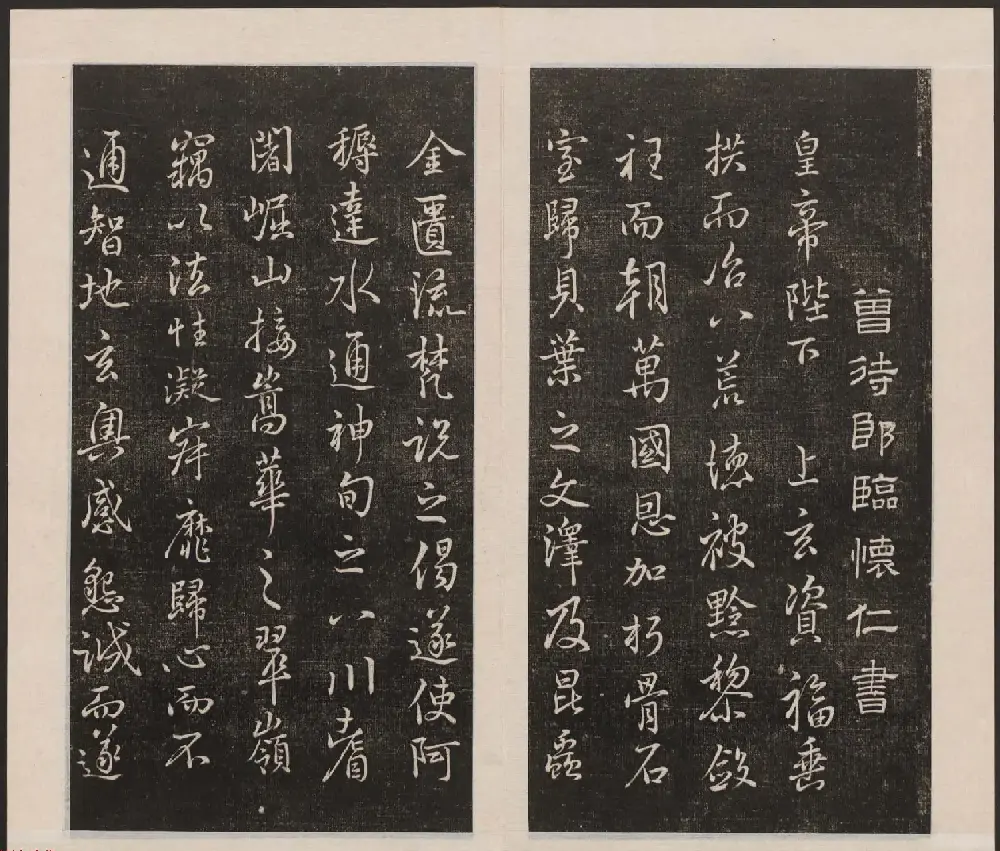 曾待郎臨懷仁書
皇帝陛下上玄資福垂
拱而治八荒德被黔黎斂
衽而朝萬國恩加朽骨石
室歸貝葉之文澤及昆蟲
金匱流梵說之偈遂使阿
耨達水通神甸之八川耆
闍崛山接嵩華之翠嶺
竊以法性凝寂靡歸心而不
通智地玄奧感懇誠而遂